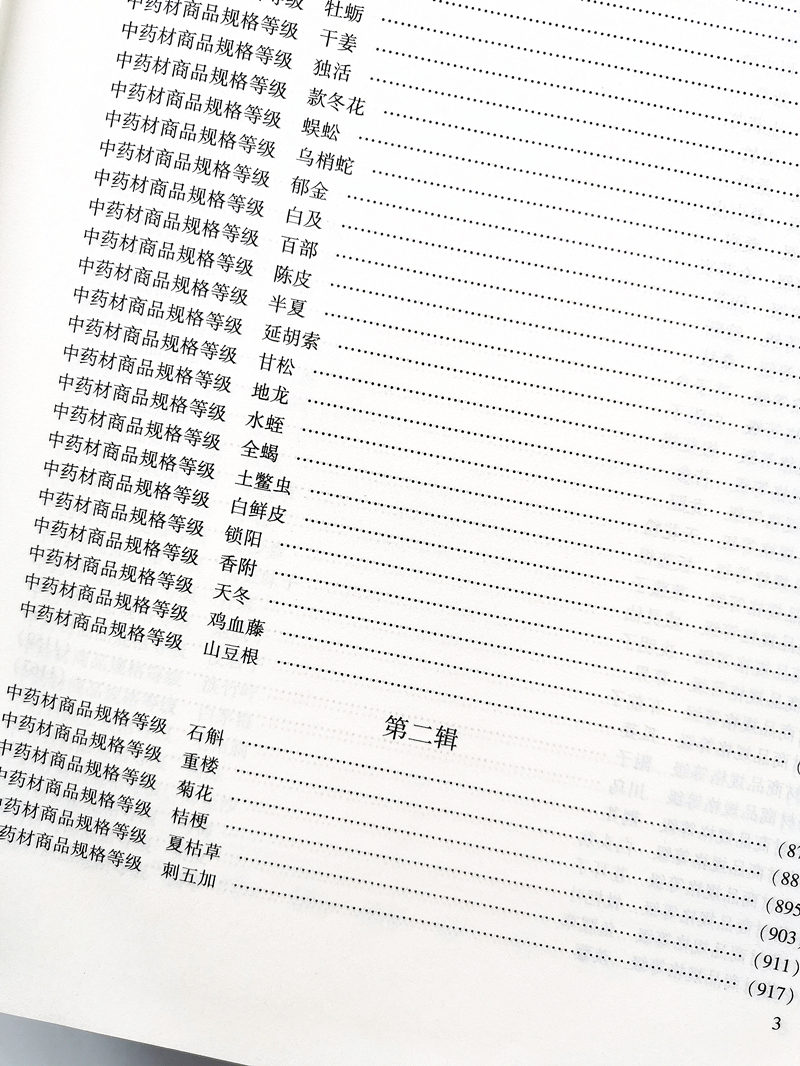 等级 牡蛎
中药材商品规格等级 干姜
中药材商品规格等级 独活
中药材商品规格等级 款冬花
中药材商品规格等级 蜈蚣
中药材商品规格等级 乌梢蛇
中药材商品规格等级 郁金
中药材商品规格等级 白及
中药材商品规格等级 百部
中药材商品规格等级 陈皮
中药材商品规格等级 半夏
中药材商品规格等级 延胡索
中药材商品规格等级 甘松
中药材商品规格等级 地龙
中药材商品规格等级 水蛭
中药材商品规格等级 全蝎
中药材商品规格等级 土鳖虫
中药材商品规格等级 白鲜皮
中药材商品规格等级 锁阳
中药材商品规格等级 香附
中药材商品规格等级 天冬
中药材商品规格等级 鸡血藤
中药材商品规格等级 山豆根
第二辑
中药材商品规格等级 石斛 (87
中药材商品规格等级 重楼 (88
中药材商品规格等级 菊花 (895
中药材商品规格等级 桔梗 (903)
中药材商品规格等级 夏枯草 (911)
药材商品规格等级 刺五加 (917)
3